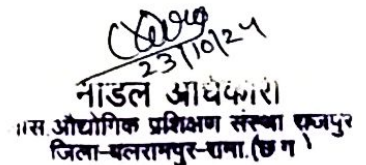 23/10/24
नोडल अधिकारी
शास. औद्योगिक प्रशिक्षण संस्था राजपुर
जिला-बलरामपुर-रामा. (छ ग)